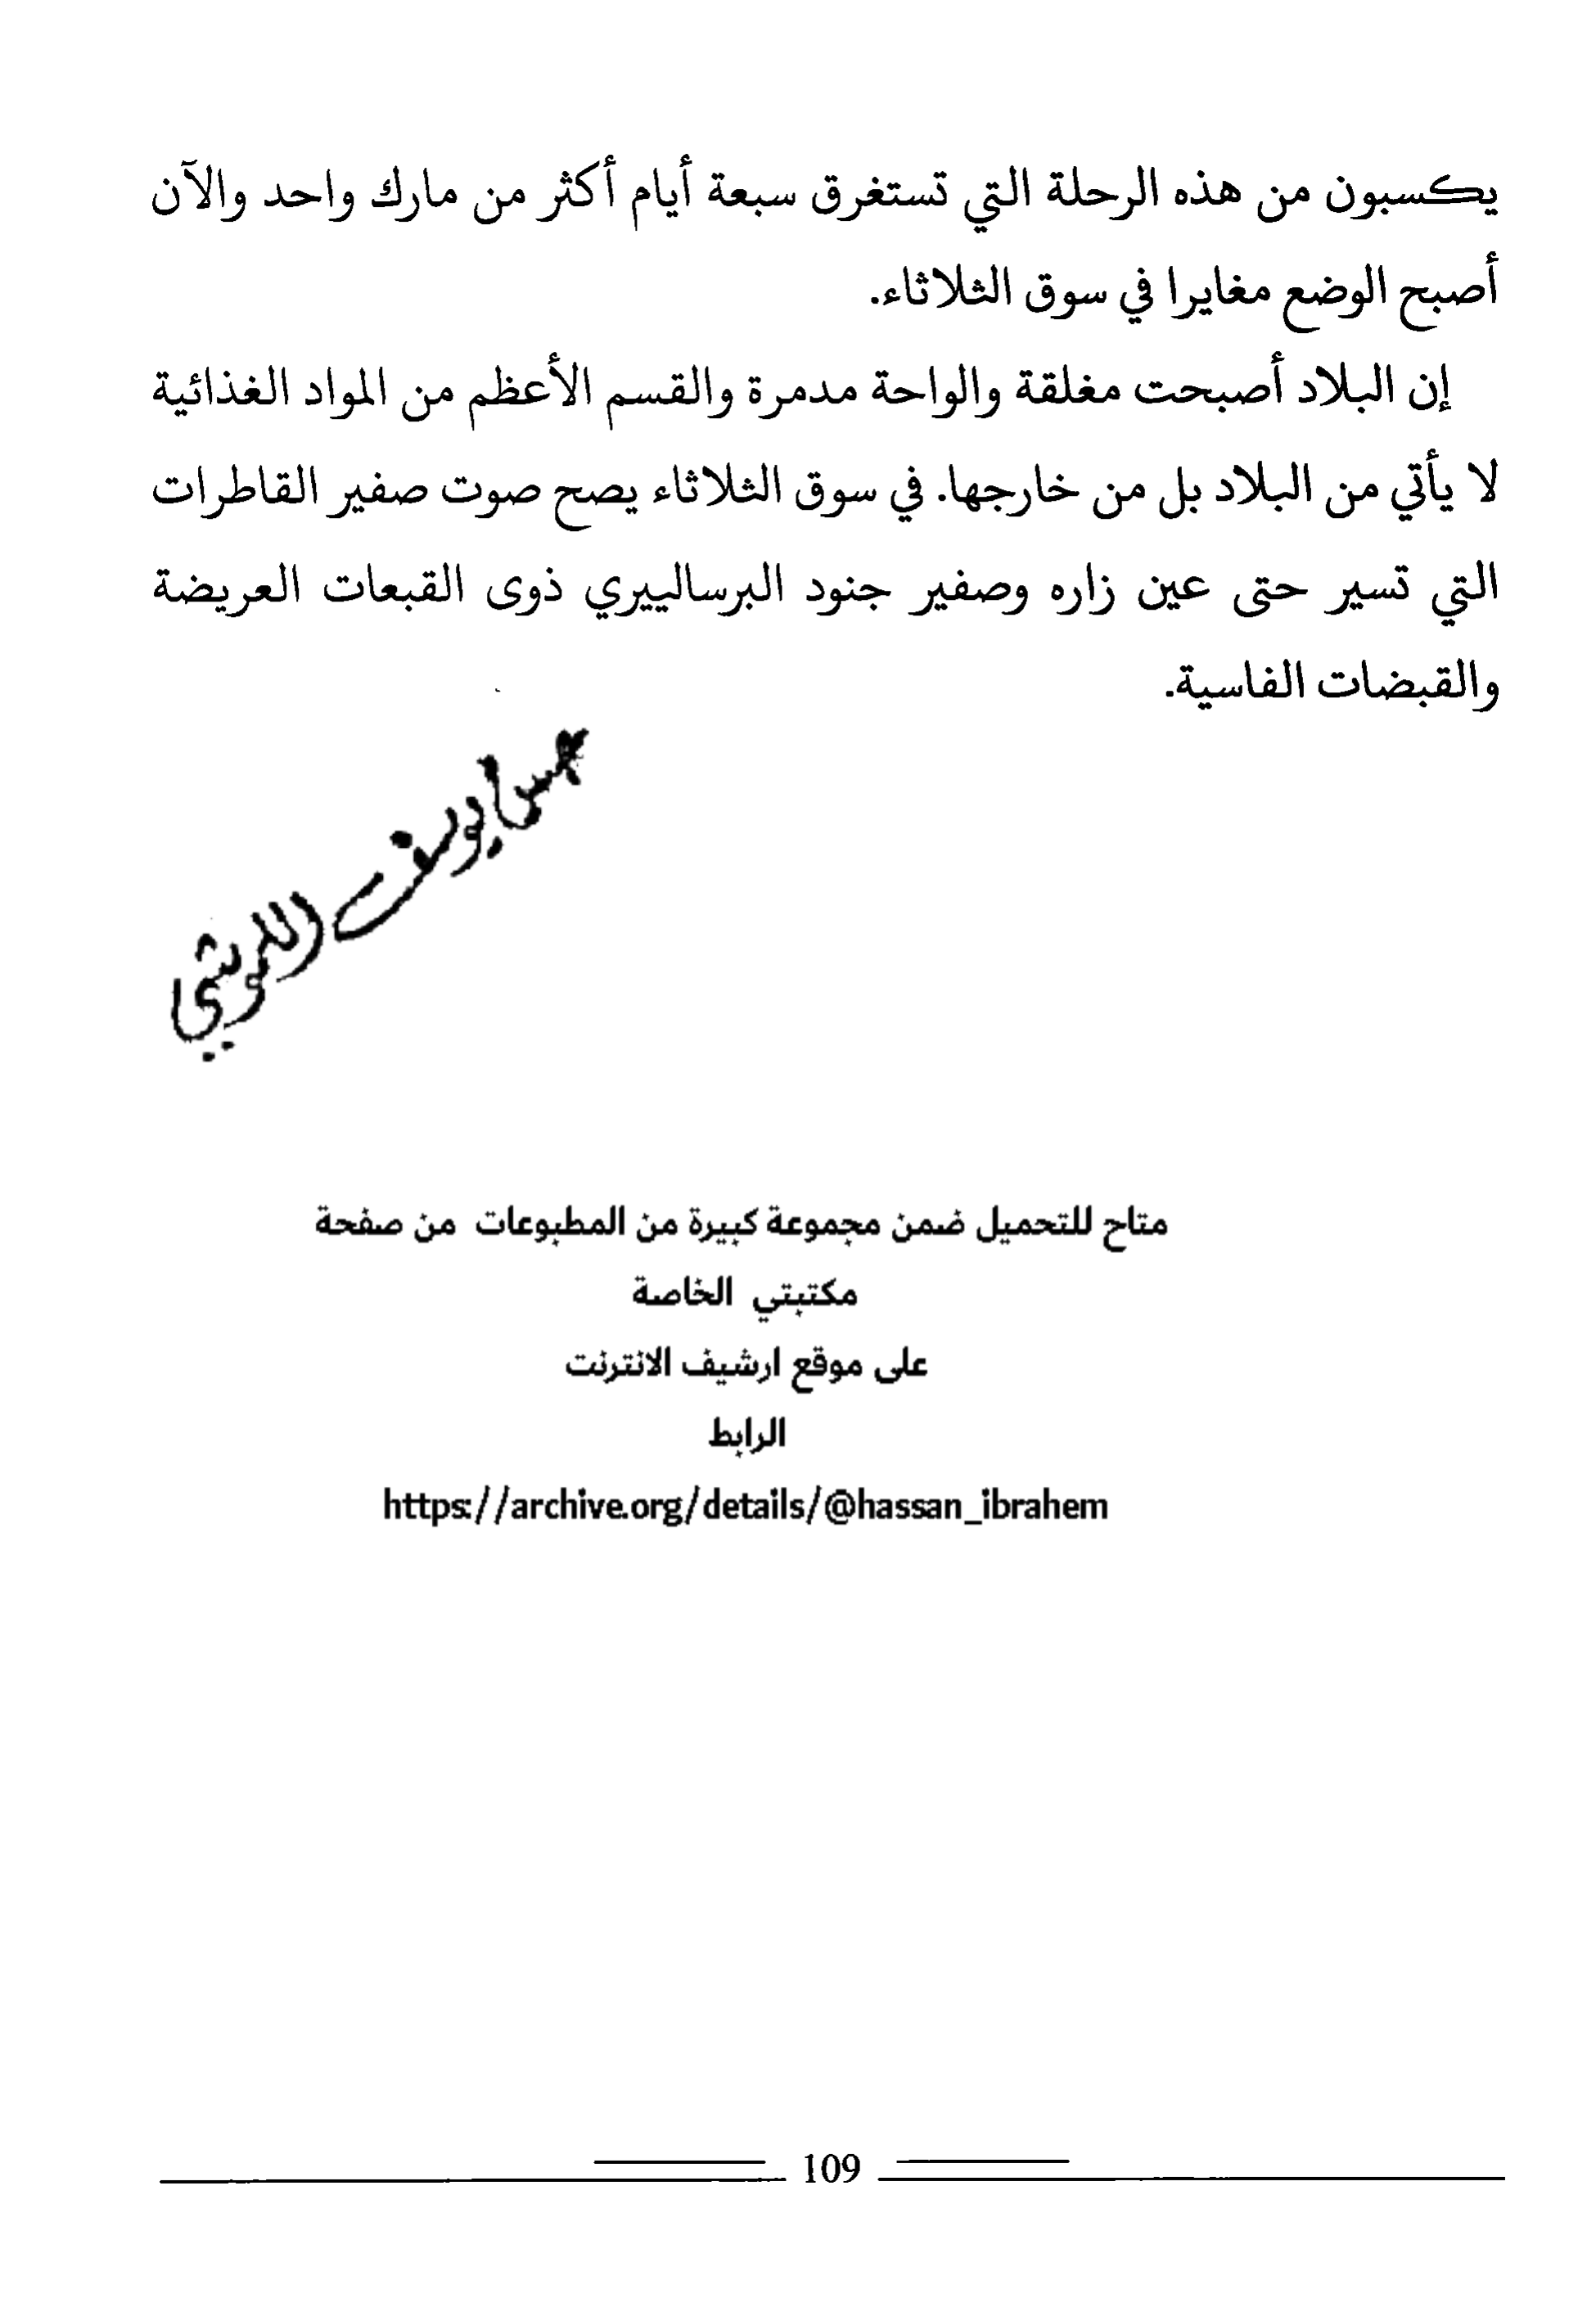 يكسبون من هذه الرحلة التي تستغرق سبعة أيام أكثر من مارك واحد والآن
أصبح الوضع مغايرا في سوق الثلاثاء.
إن البلاد أصبحت مغلقة والواحة مدمرة والقسم الأعظم من المواد الغذائية
لا يأتي من البلاد بل من خارجها. في سوق الثلاثاء يصح صوت صفير القاطرات
التي تسير حتى عين زاره وصفير جنود البرسالييري ذوى القبعات العريضة
والقبضات الفاسية.
يوسف
متاح للتحميل ضمن مجموعة كبيرة من المطبوعات من صفحة
مكتبتي الخاصة
على موقع ارشيف الانترنت
الرابط
https://archive.org/details/@hassan_ibrahem
109